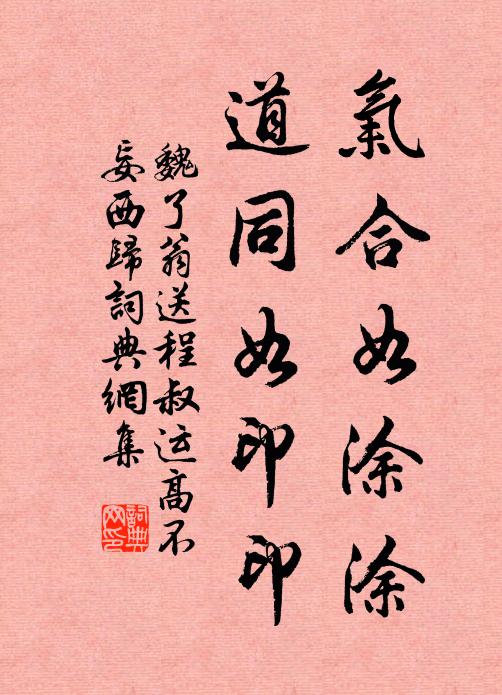 氣合如涂涂
道同如印印
魏了翁送程叔运高不
妄西歸詞典網集
詞典
网印